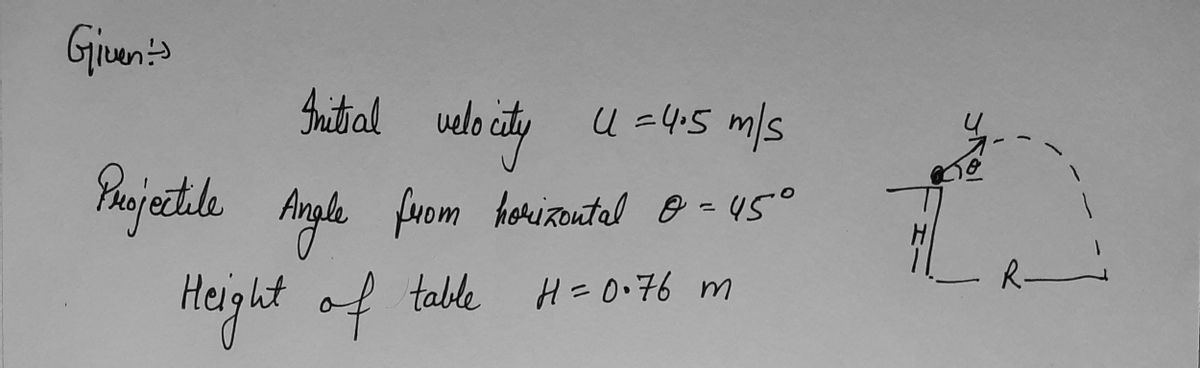 Given:→
Initial velocity u = 4.5 m/s
Projectile Angle from horizontal θ = 45°
Height of table H = 0.76 m
u
θ
H
R